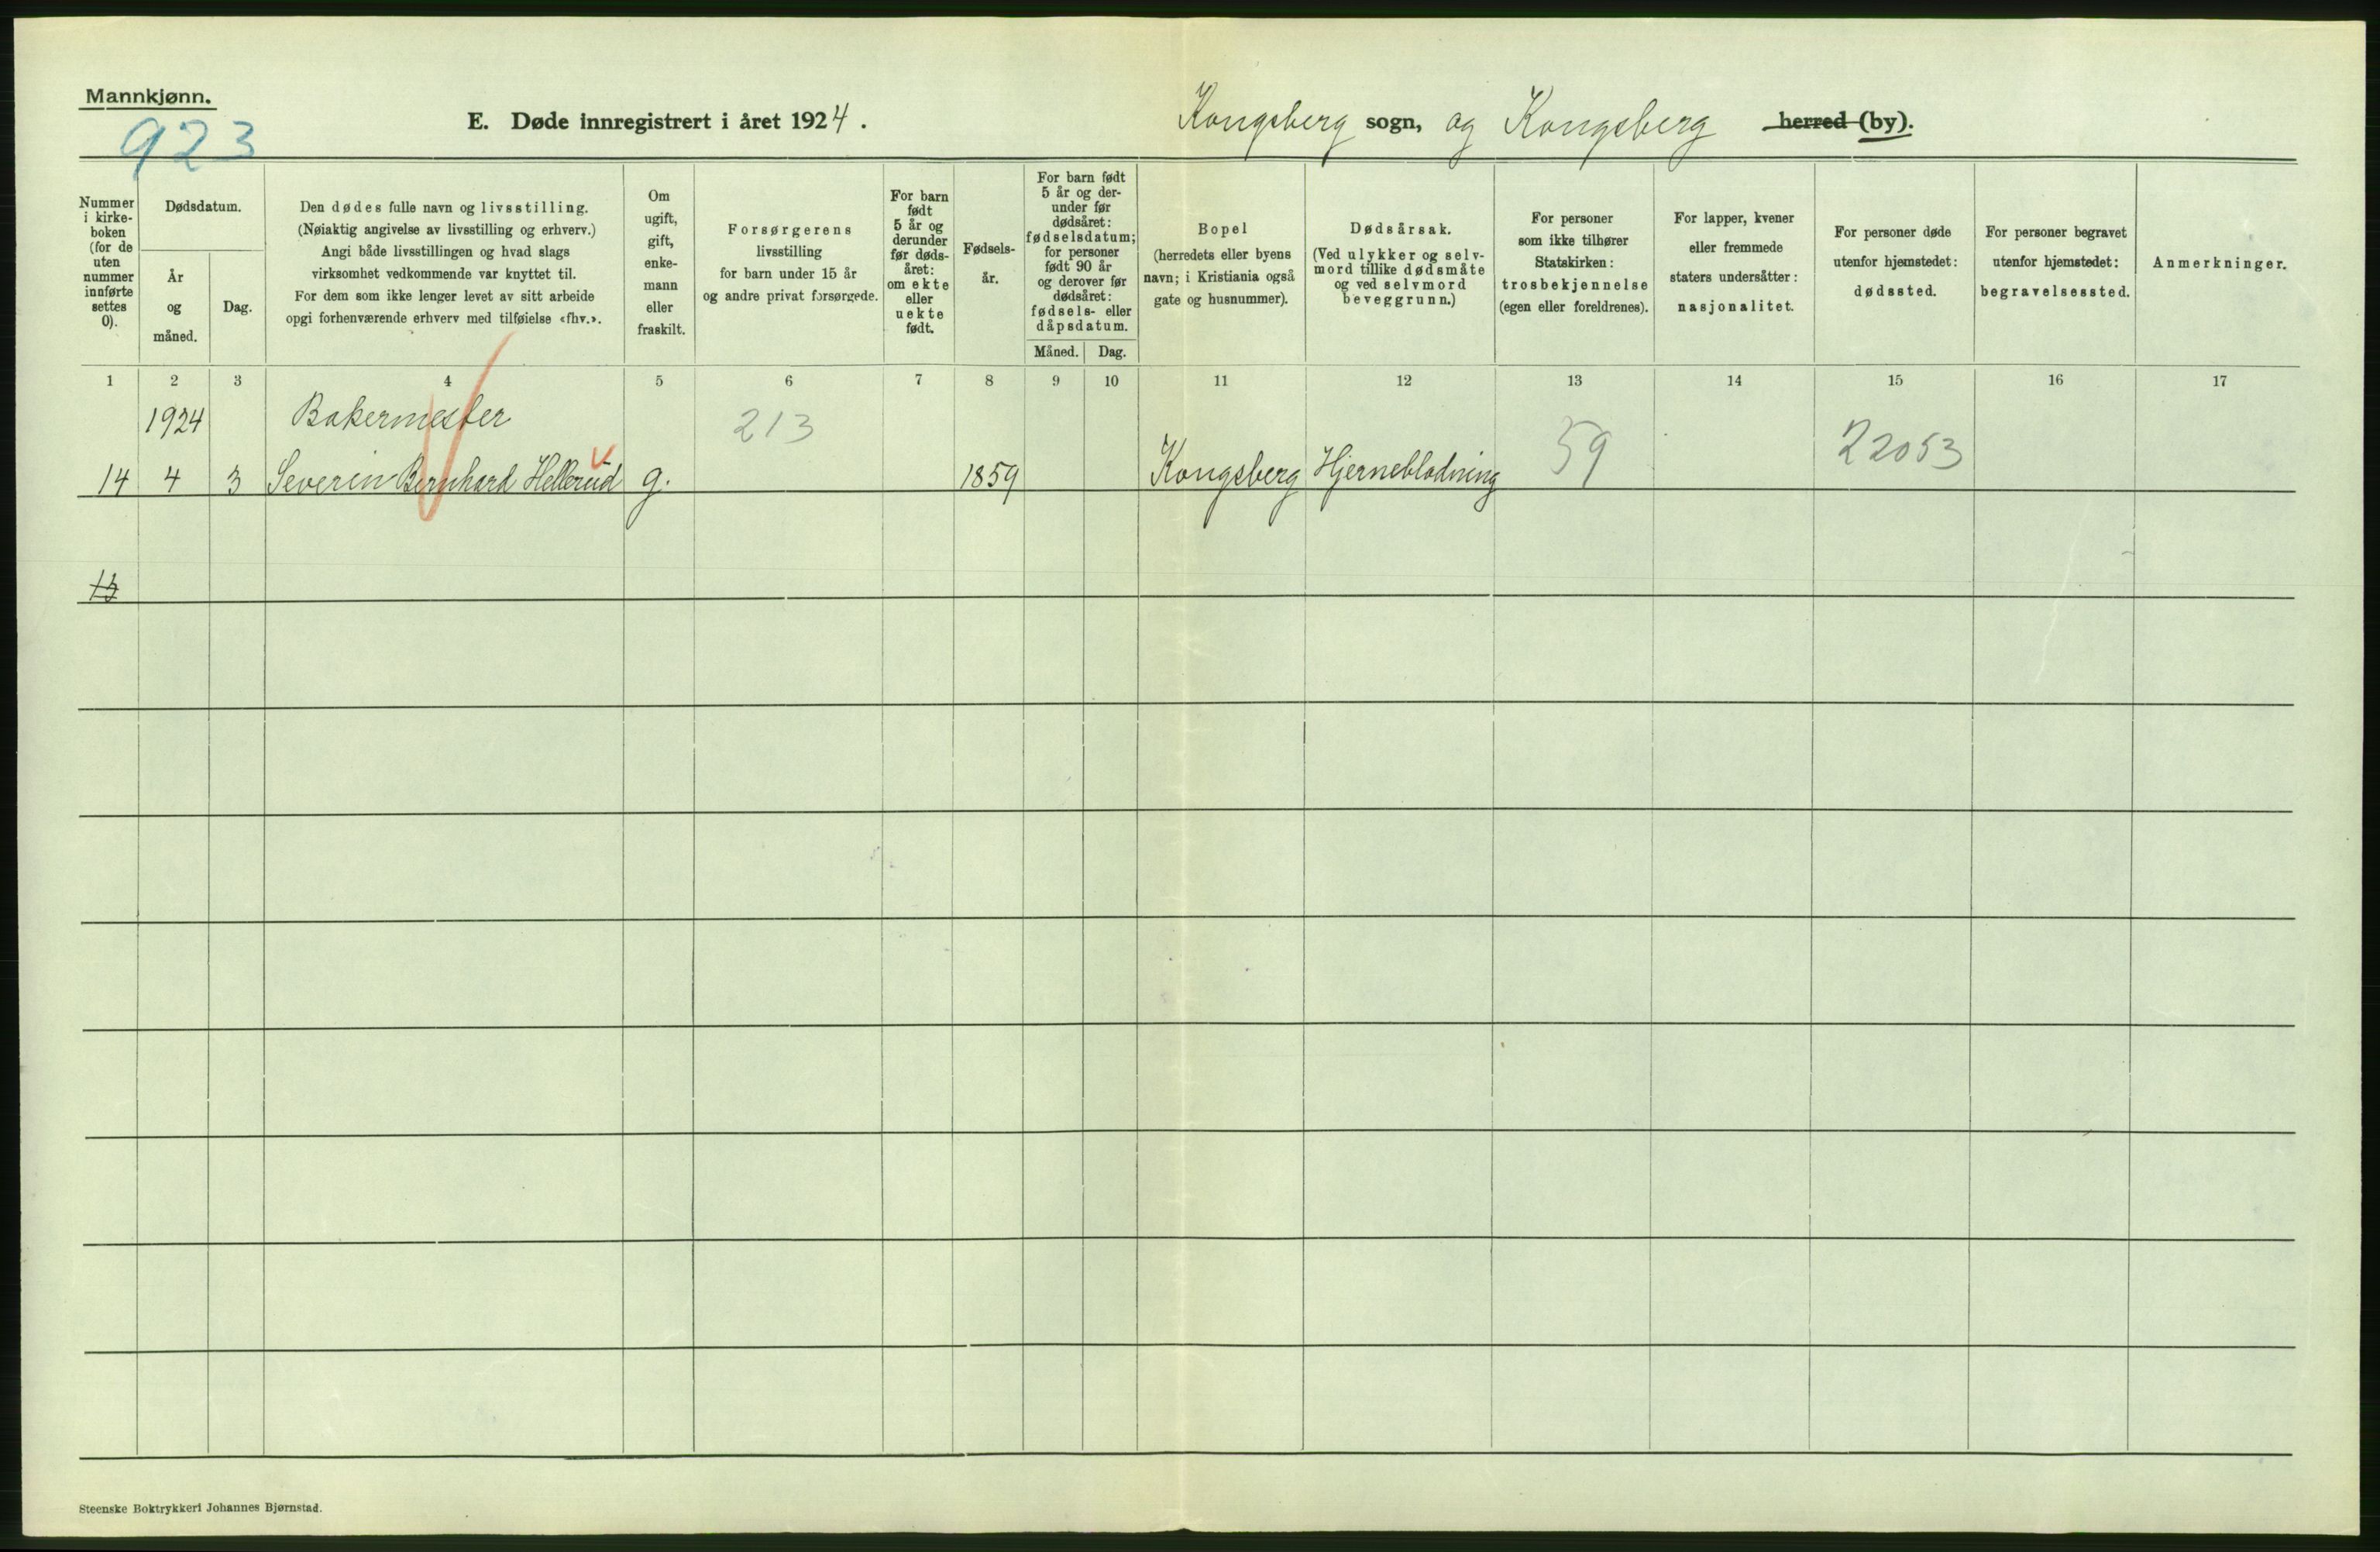 Mannkjønn.
923
E. Døde innregistrert i året 1924.
Kongsberg sogn, og Kongsberg herred (by).
Nummer
i kirke-
boken
(for de
uten
nummer
innførte
settes
0).
Dødsdatum.
År
og
måned.
Dag.
Den dødes fulle navn og livsstilling.
(Nøiaktig angivelse av livsstilling og erhverv.)
Angi både livsstillingen og hvad slags
virksomhet vedkommende var knyttet til.
For dem som ikke lenger levet av sitt arbeide
opgi forhenværende erhverv med tilføielse «fhv.».
Om
ugift,
gift,
enke-
mann
eller
fraskilt.
Forsørgerens
livsstilling
for barn under 15 år
og andre privat forsørgede.
For barn
født
5 år og
derunder
før døds-
året:
om ekte
eller
uekte
født.
Fødsels-
år.
For barn født
5 år og der-
under før
dødsåret:
fødselsdatum;
for personer
født 90 år
og derover før
dødsåret:
fødsels- eller
dåpsdatum.
Måned.
Dag.
Bopel
(herredets eller byens
navn; i Kristiania også
gate og husnummer).
Dødsårsak.
(Ved ulykker og selv-
mord tillike dødsmåte
og ved selvmord
beveggrunn.)
For personer
som ikke tilhører
Statskirken:
trosbekjennelse
(egen eller foreldrenes).
For lapper, kvener
eller fremmede
staters undersåtter:
nasjonalitet.
For personer døde
utenfor hjemstedet:
dødssted.
For personer begravet
utenfor hjemstedet:
begravelsessted.
Anmerkninger.
1 2 3 4 5 6 7 8 9 10 11 12 13 14 15 16 17
1924 Bakermester 213 59 22053
14 4 3 Severin Bernhard Hellerud g. 1859 Kongsberg Hjerneblødning
15
Steenske Boktrykkeri Johannes Bjørnstad.